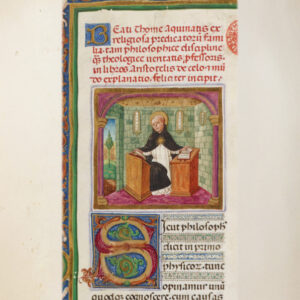 Beati Thome aquinatis ex
religiosa predicatorũ fami
lia. tam philosophice discipline
q̃ theologice veritatis professoris.
in libros Aristotelis de celo ⁊ mũ
do explanatio. feliciter incipit.
Sicut philosoph
dicit in primo
physicor. tunc
opinamur unũ
quodq̃ cognoscere, cum causas